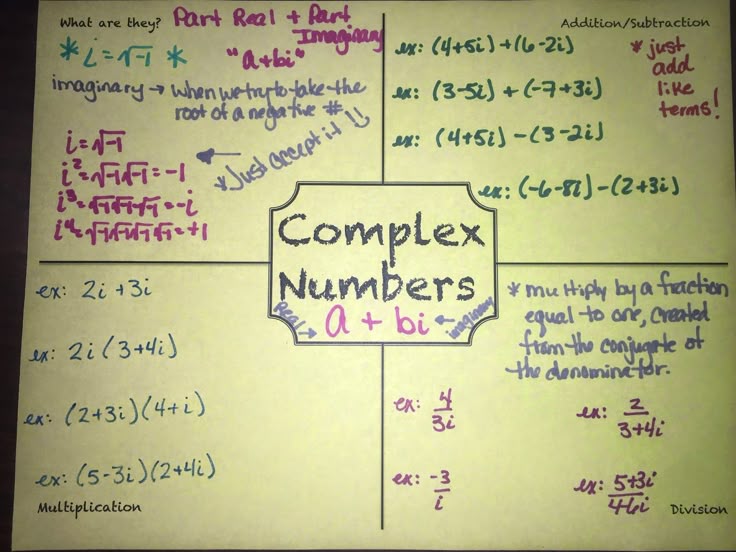 What are they? Part Real + Part
Imaginary
* i = √-1 * "a+bi"
imaginary → when we try to take the
root of a negative #
i = √-1
i² = √-1√-1 = -1
i³ = √-1√-1√-1 = -i
i⁴ = √-1√-1√-1√-1 = +1
* Just accept it
Addition/Subtraction
ex: (4+5i) + (6-2i)
ex: (3-5i) + (-7+3i)
ex: (4+5i) - (3-2i)
ex: (-6-8i) - (2+3i)
* just
add
like
terms!
Complex
Numbers
real → a + bi ← imaginary
ex: 2i + 3i
ex: 2i (3+4i)
ex: (2+3i)(4+i)
ex: (5-3i)(2+4i)
Multiplication
* multiply by a fraction
equal to one, created
from the conjugate of
the denominator.
ex: 4/3i
ex: 2/3+4i
ex: -3/i
ex: 5+3i/4-6i
Division